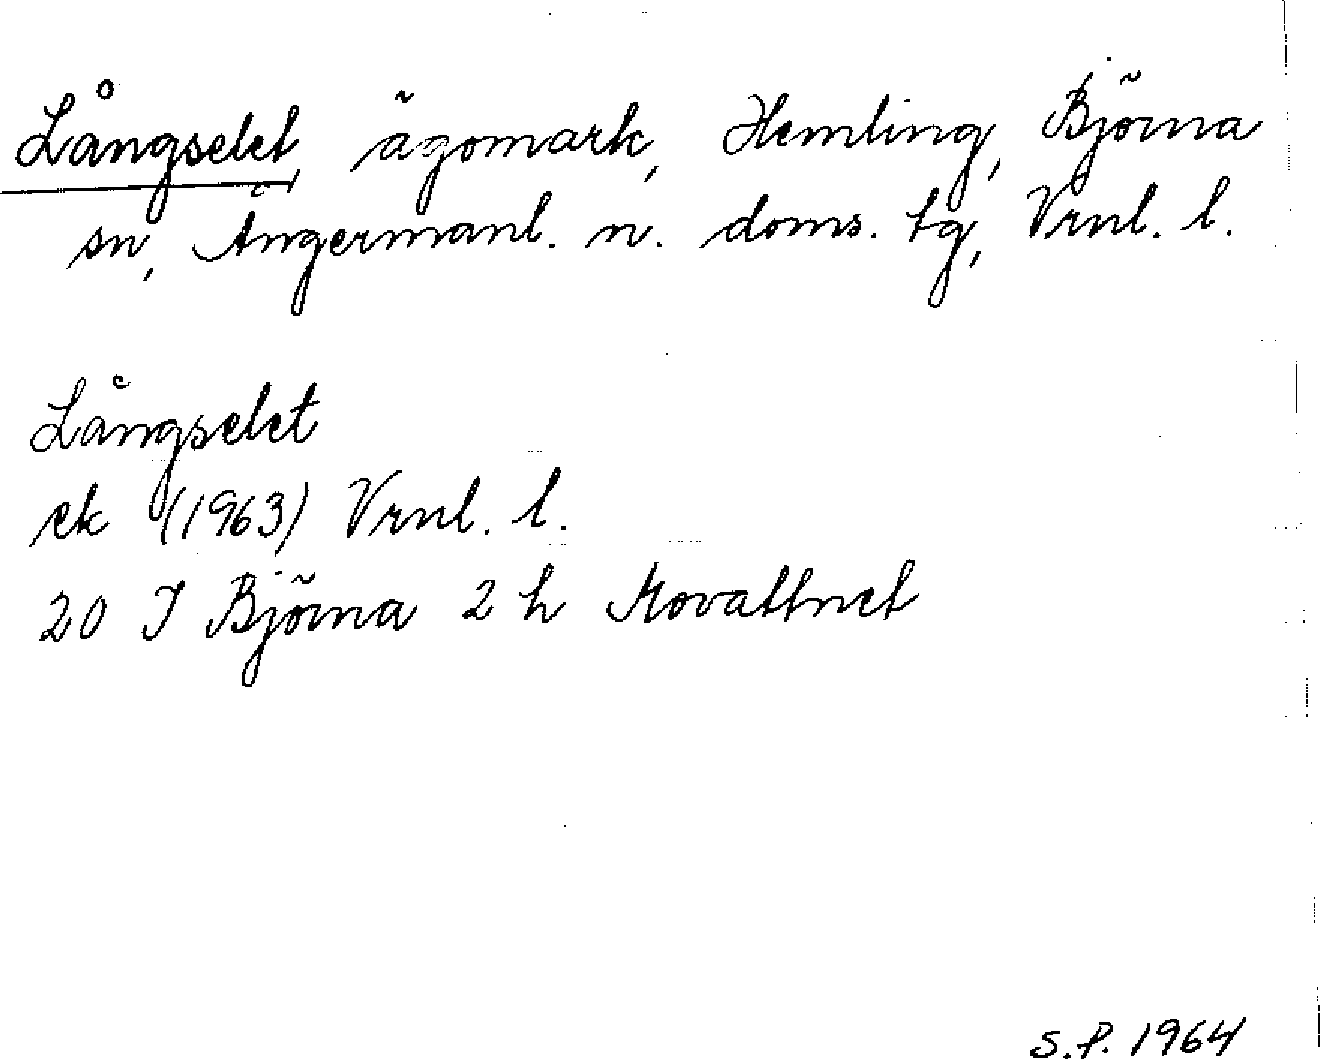 Långselet, ägomark, Hemling, Björna
sn, Ångermanl. n. doms. tg, Vrnl. l.
Långselet
ek (1963) Vrnl. l.
20 J Björna 2 h Movattnet
S.P. 1964